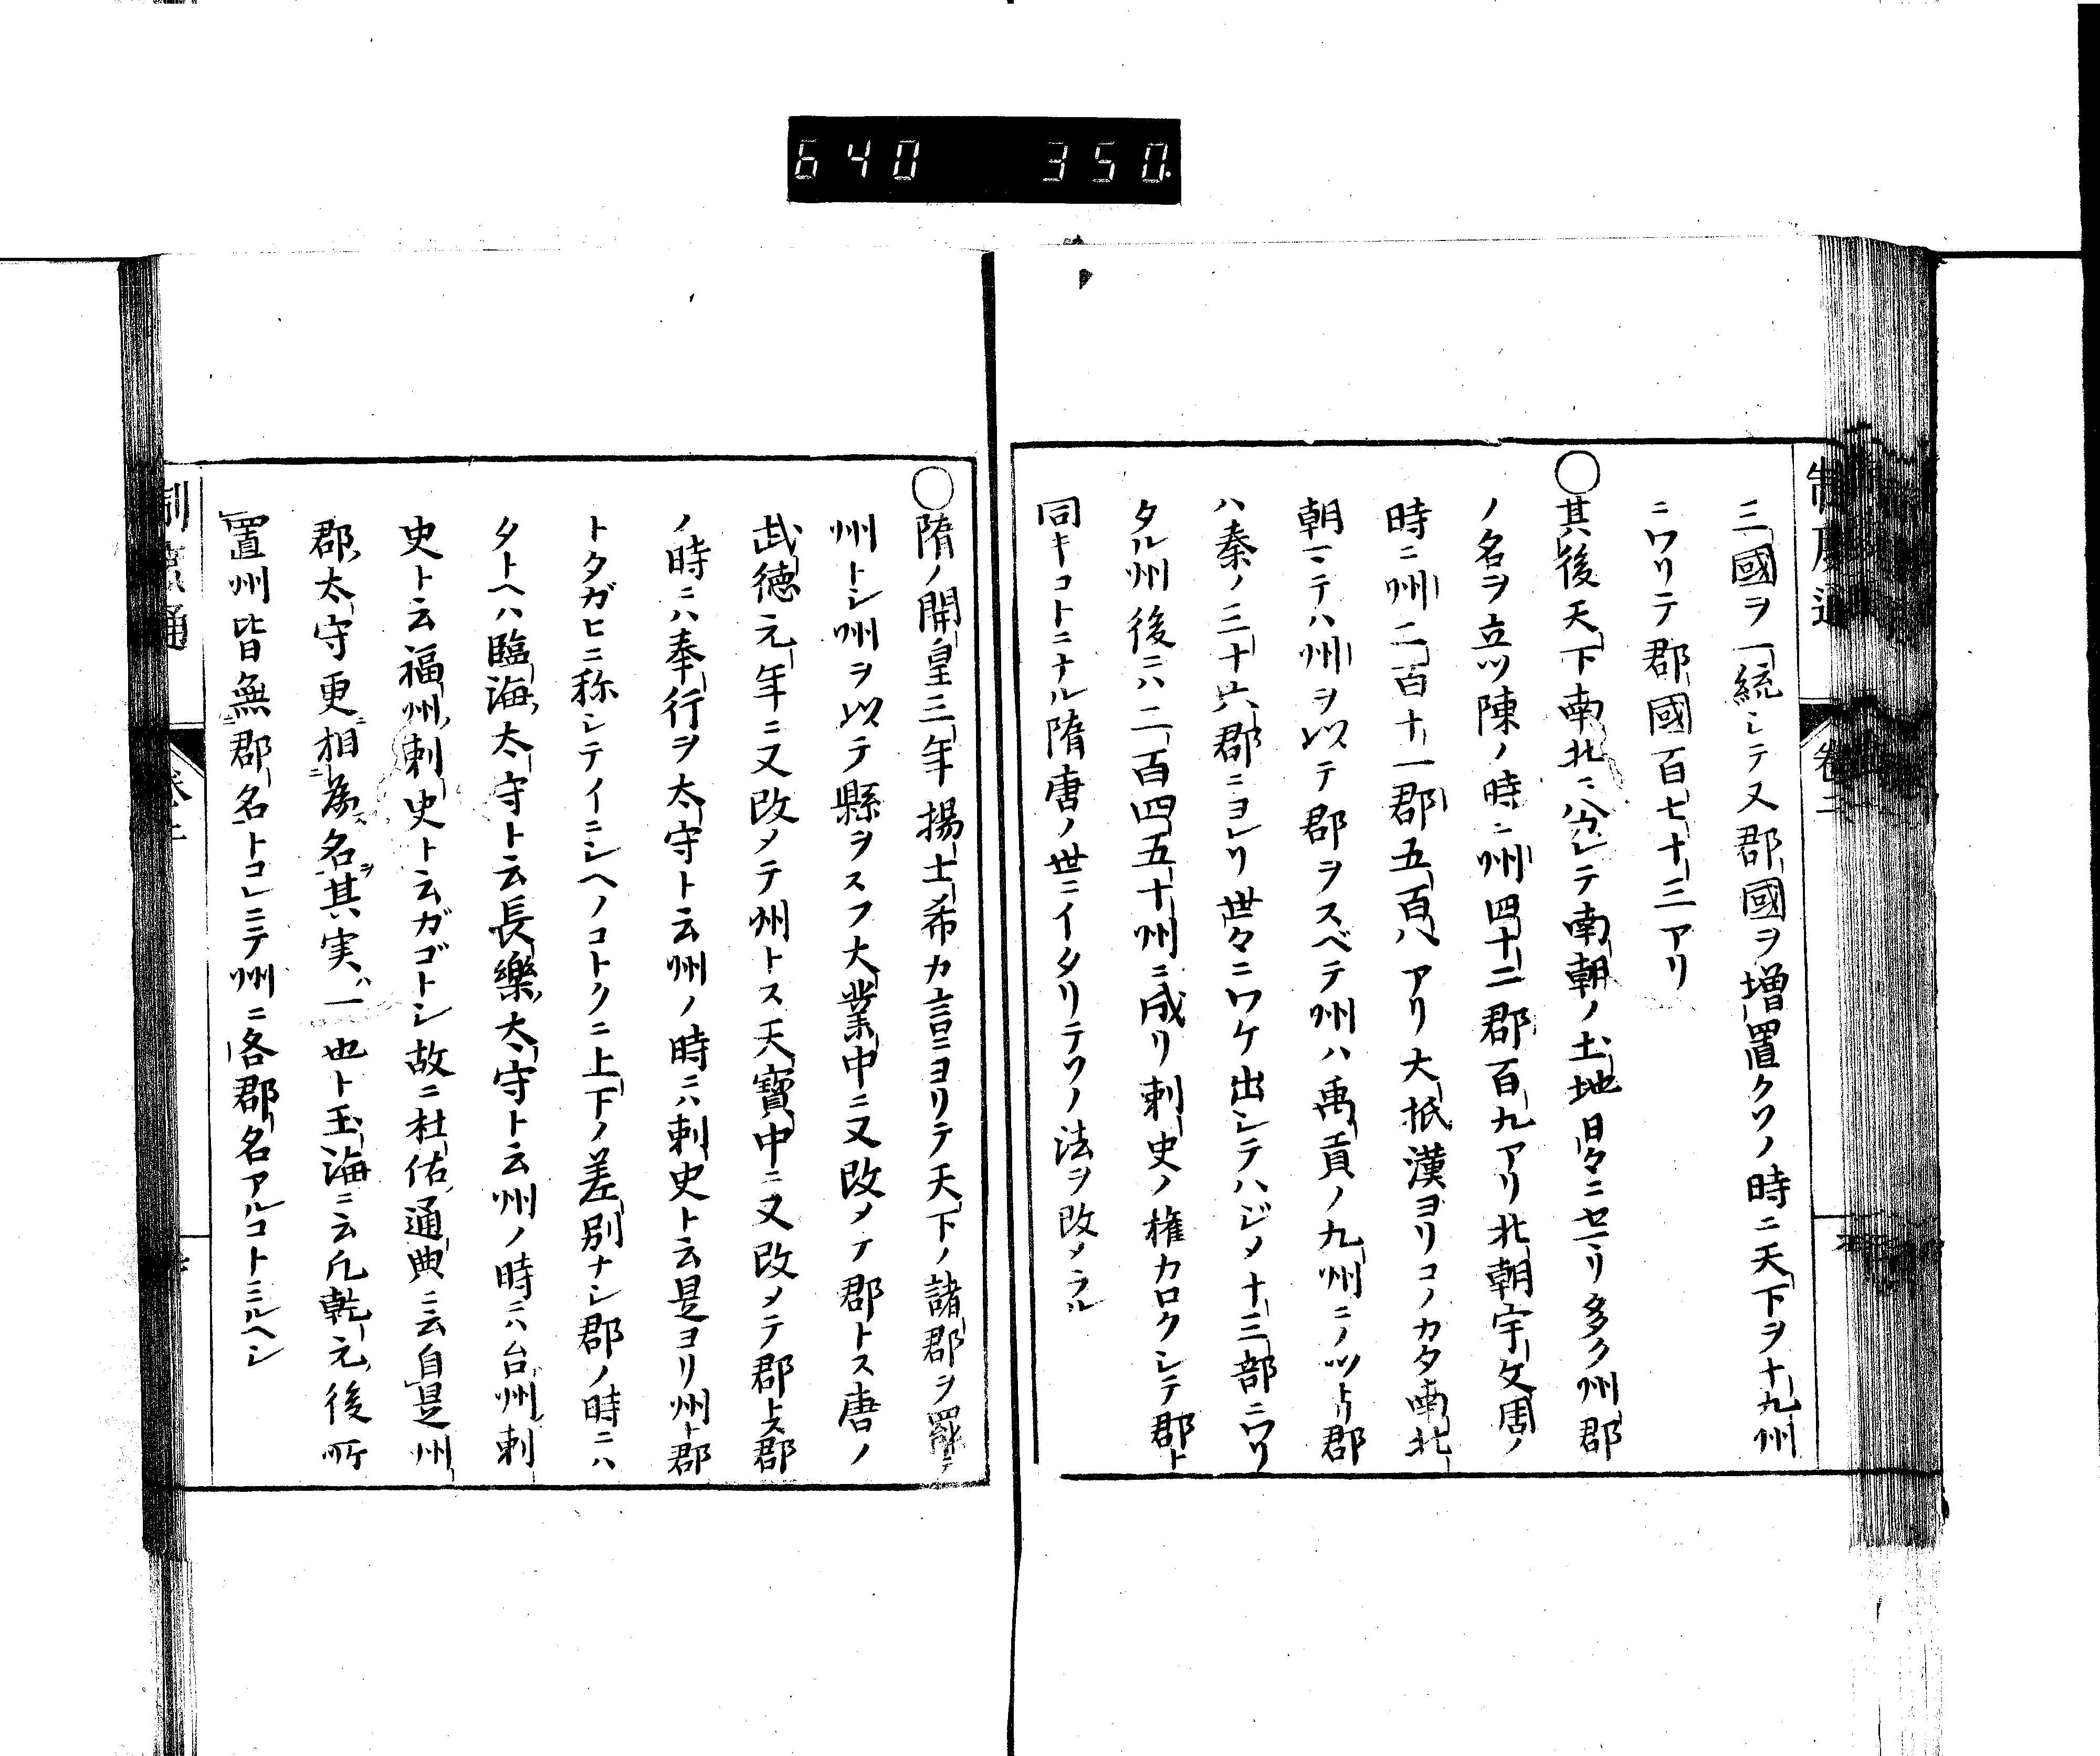 640 350.
制度通 卷二
三國ヲ一統シテ又郡國ヲ増置クワノ時ニ天下ヲ十九州
ニワリテ郡國百七十三アリ
〇其後天下南北ニ分レテ南朝ノ土地日々ニセマリ多ク州郡
ノ名ヲ立ツ陳ノ時ニ州四十二郡百九アリ北朝宇文周ノ
時ニ州二百十一郡五百八アリ大抵漢ヨリコノカタ南北
朝マテハ州ヲ以テ郡ヲスベテ州ハ禹貢ノ九州ニノツトリ郡
ハ秦ノ三十六郡ニヨレリ世々ニワケ出シテハジメ十三部ニワリ
タル州後ニハ二百四五十州ニ成リ刺史ノ権カロクシテ郡ト
同キコトニナル隋唐ノ世ニイタリテワノ法ヲ改メラル
〇隋ノ開皇三年揚士希カ言ニヨリテ天下ノ諸郡ヲ罷テ
州トシ州ヲ以テ縣ヲスフ大業中ニ又改メテ郡トス唐ノ
武德元年ニ又改メテ州トス天寶中ニ又改メテ郡トス郡
ノ時ニハ奉行ヲ太守ト云州ノ時ニハ刺史ト云是ヨリ州ト郡
トタガヒニ称シテイニシヘノコトクニ上下ノ差別ナシ郡ノ時ニハ
タトヘハ臨海太守ト云長樂太守ト云州ノ時ニハ台州刺
史ト云福州刺史ト云ガゴトシ故ニ杜佑通典ニ云自是州
郡太守更相為名其実一也ト玉海ニ云凡乾元後所
置州皆無郡名トコレニテ州ニ各郡名アルコトミルヘシ
卷二